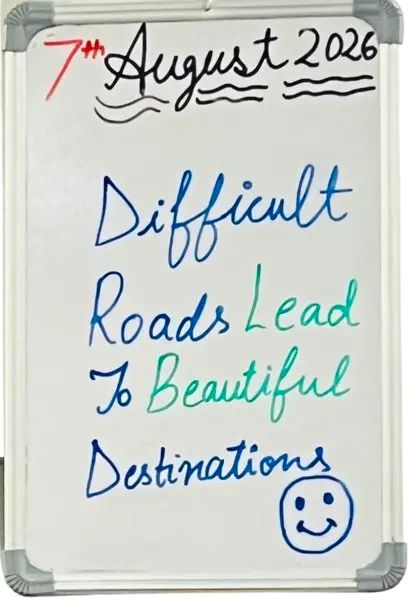 7th August 2026
Difficult
Roads Lead
To Beautiful
Destinations